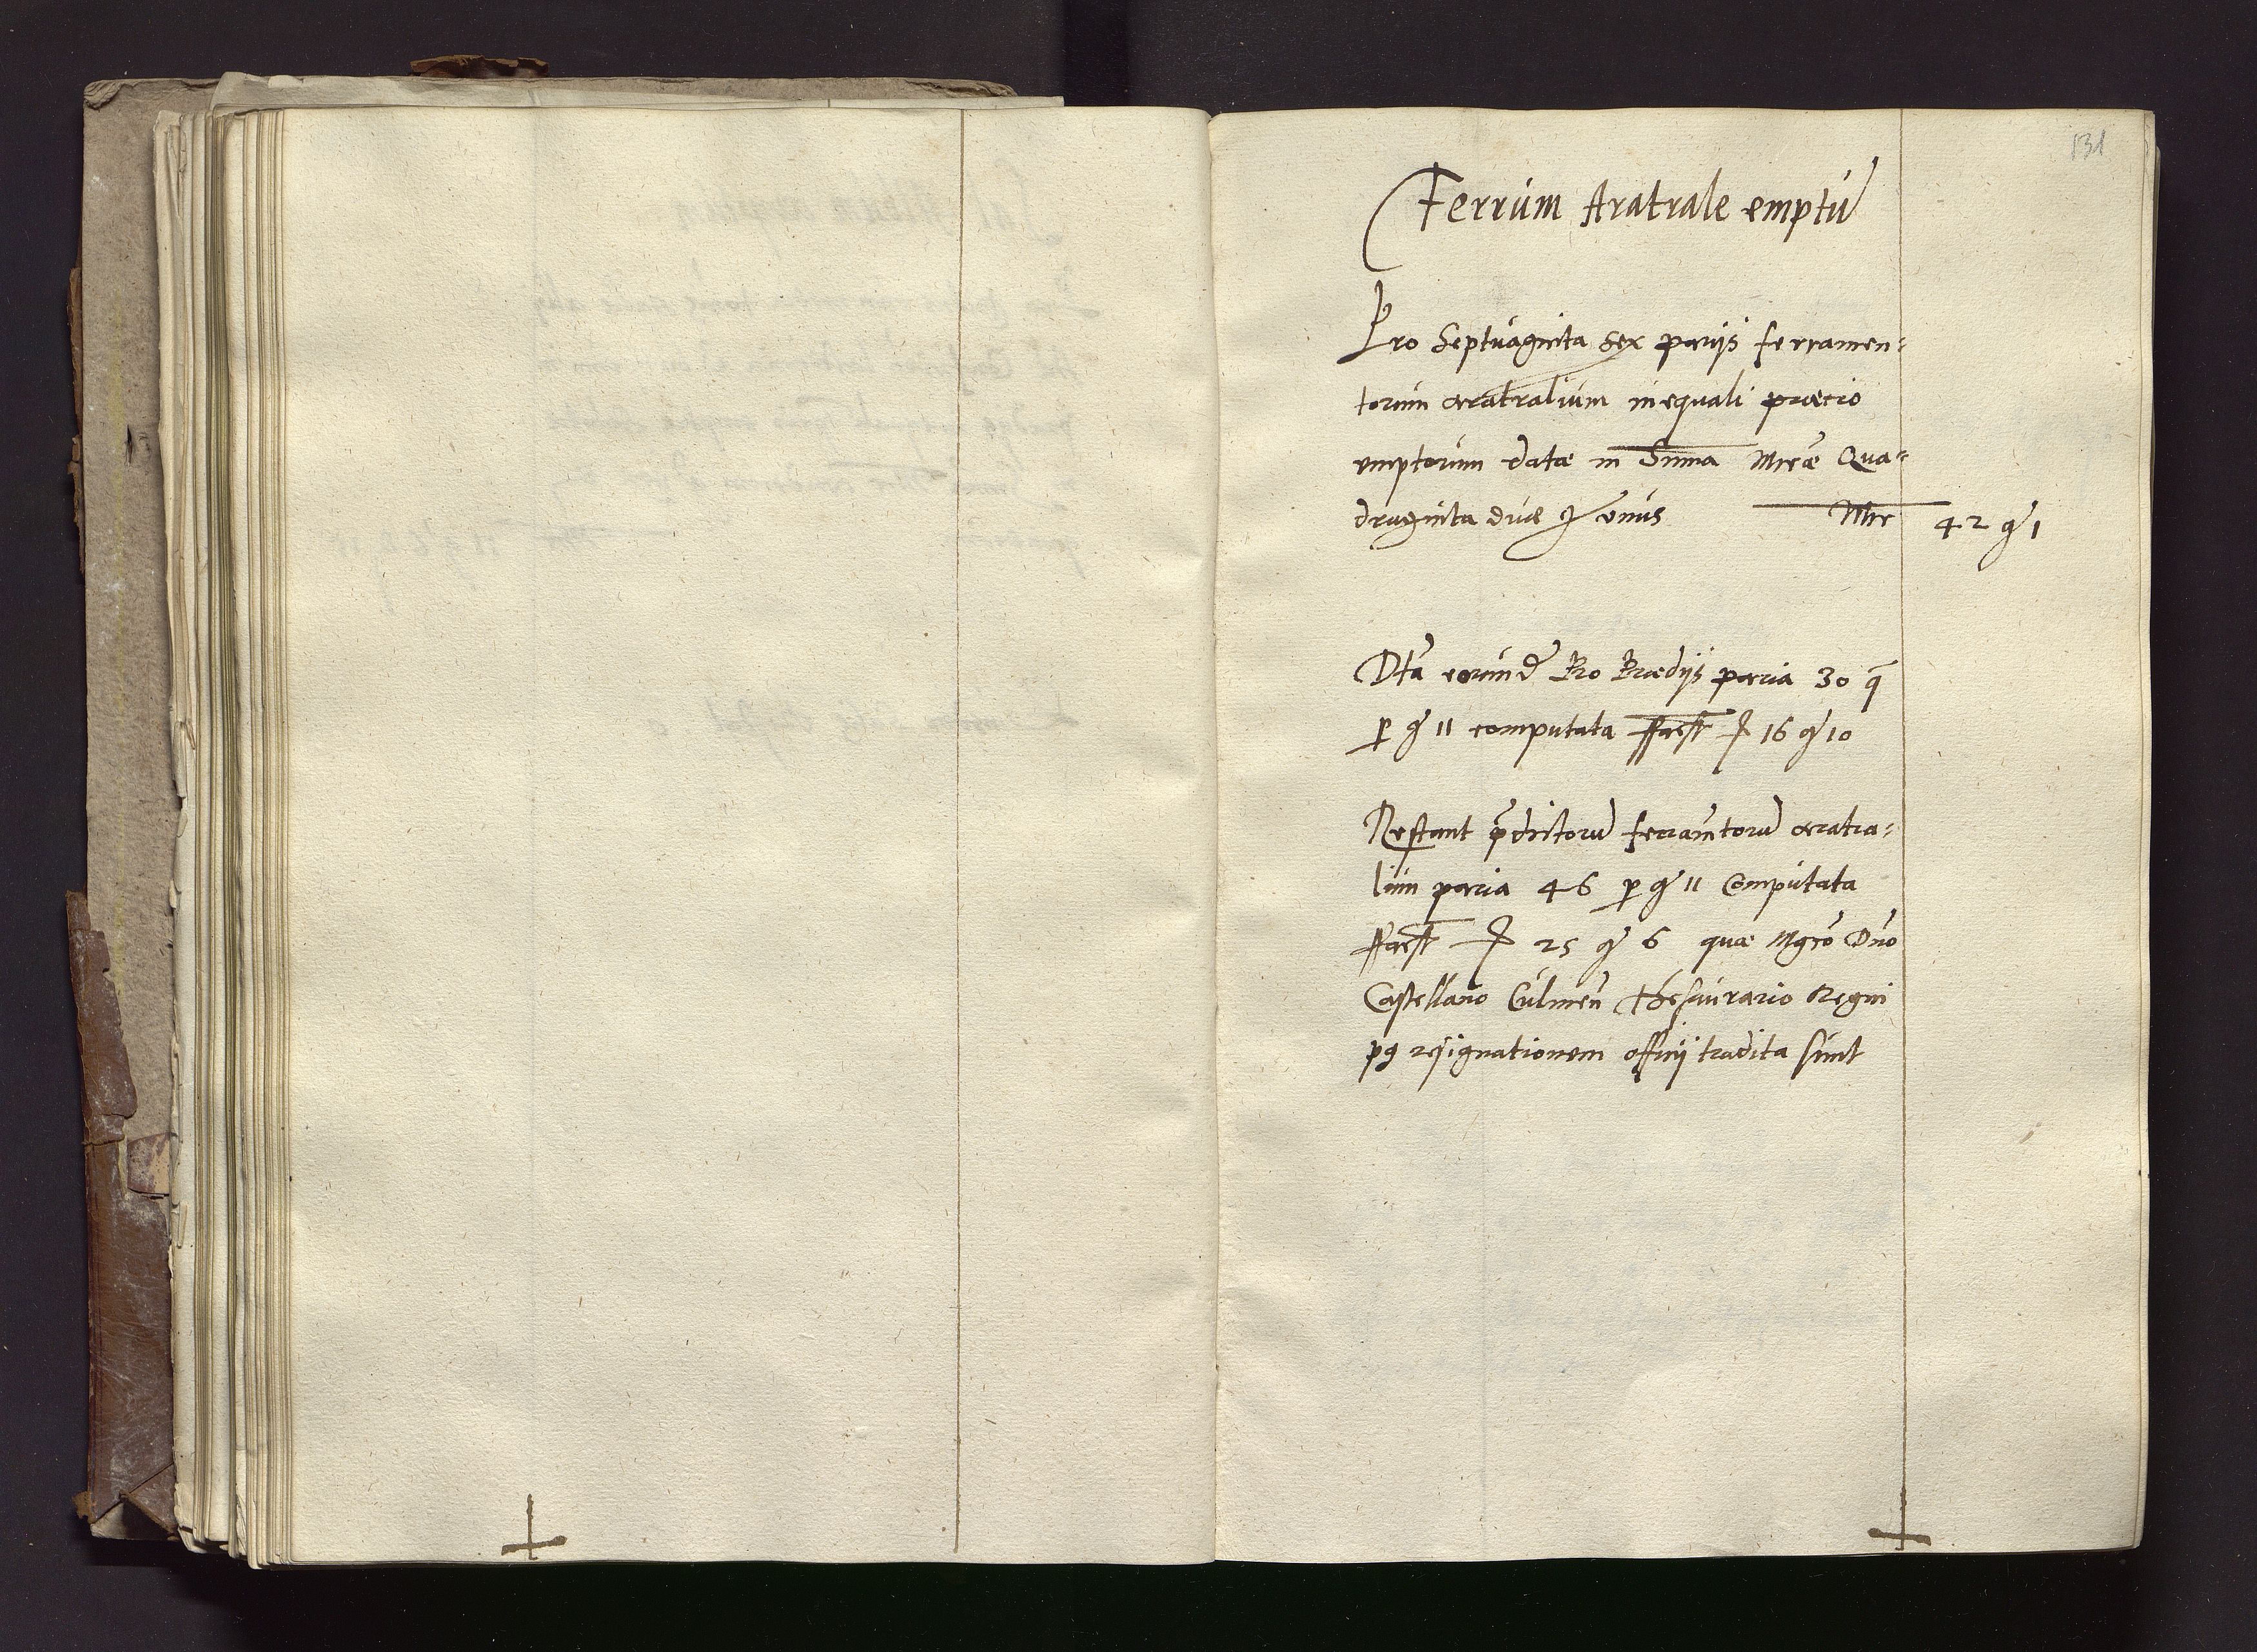 131
Ferrum Aratrale emptũ
Pro Septuaginta sex pariis ferramen-
torum aratralium inequali praecio
emptorum datae in Suma Mrcae Qua-
draginta duae gr unus Mrc 42 gr 1
Dta eorund Pro Praedijs paria 30 q̃
p gr 11 computata ffacit f 16 gr 10
Restant p̃dictorũ ferramtorũ aratra-
lium paria 46 p gr 11 Computata
ffacit f 25 gr 6 quae Mgco Dno
Castellano Culmeñ Thesaurario Regni
p9 resignationem officij tradita sunt